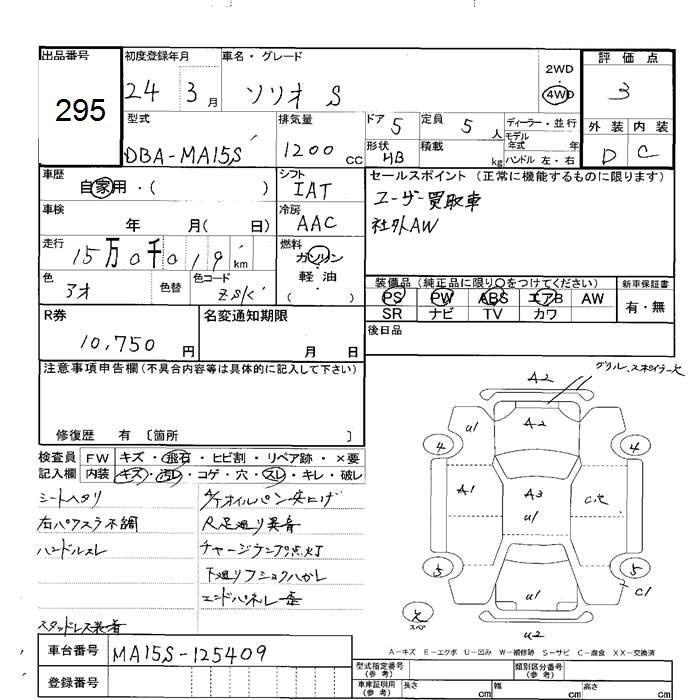 出品番号
295
初度登録年月
24 3月
車名・グレード
ソリオ S
2WD
・
4WD
評価点
3
外装 内装
D C
型式
DBA-MA15S
排気量
1200cc
ドア 5
定員 5人
形状 HB
積載 kg
ディーラー・並行
モデル年式 年
ハンドル 左・右
車歴
自家用・( )
シフト
IAT
セールスポイント (正常に機能するものに限ります)
ユーザー買取車
社外AW
車検
年 月( 日)
冷房
AAC
走行
15万0千019km
燃料
ガソリン
・
軽油
( )
色
アオ
色替
色コード
装備品 (純正品に限り○をつけてください)
PS PW ABS エアB AW
SR ナビ TV カワ
新車保証書
有・無
R券
10,750円
名変通知期限
月 日
後日品
注意事項申告欄(不具合内容等は具体的に記入して下さい)
修復歴 有 〔箇所 〕
検査員記入欄
FW キズ・飛石・ヒビ割・リペア跡・×要
内装 キズ・汚レ・コゲ・穴・スレ・キレ・破レ
シートヘタリ
右パワスラ不調
ハンドルスレ
スタッドレス装着
オイルパン
R足廻り異音
チャージランプ点灯
下廻りフショクハガレ
エンドパネル歪
グリル、スポイラー欠
A2
A2
u1
4
4
A1
A3
u1
5
5
C1
u1
u2
欠
スペア
A-キズ E-エクボ U-凹み W-補修跡 S-サビ C-腐食 XX-交換済
車台番号
MA15S-125409
登録番号
型式指定番号(参考)
類別区分番号(参考)
車庫証明用(参考)
長さ cm
幅 cm
高さ cm